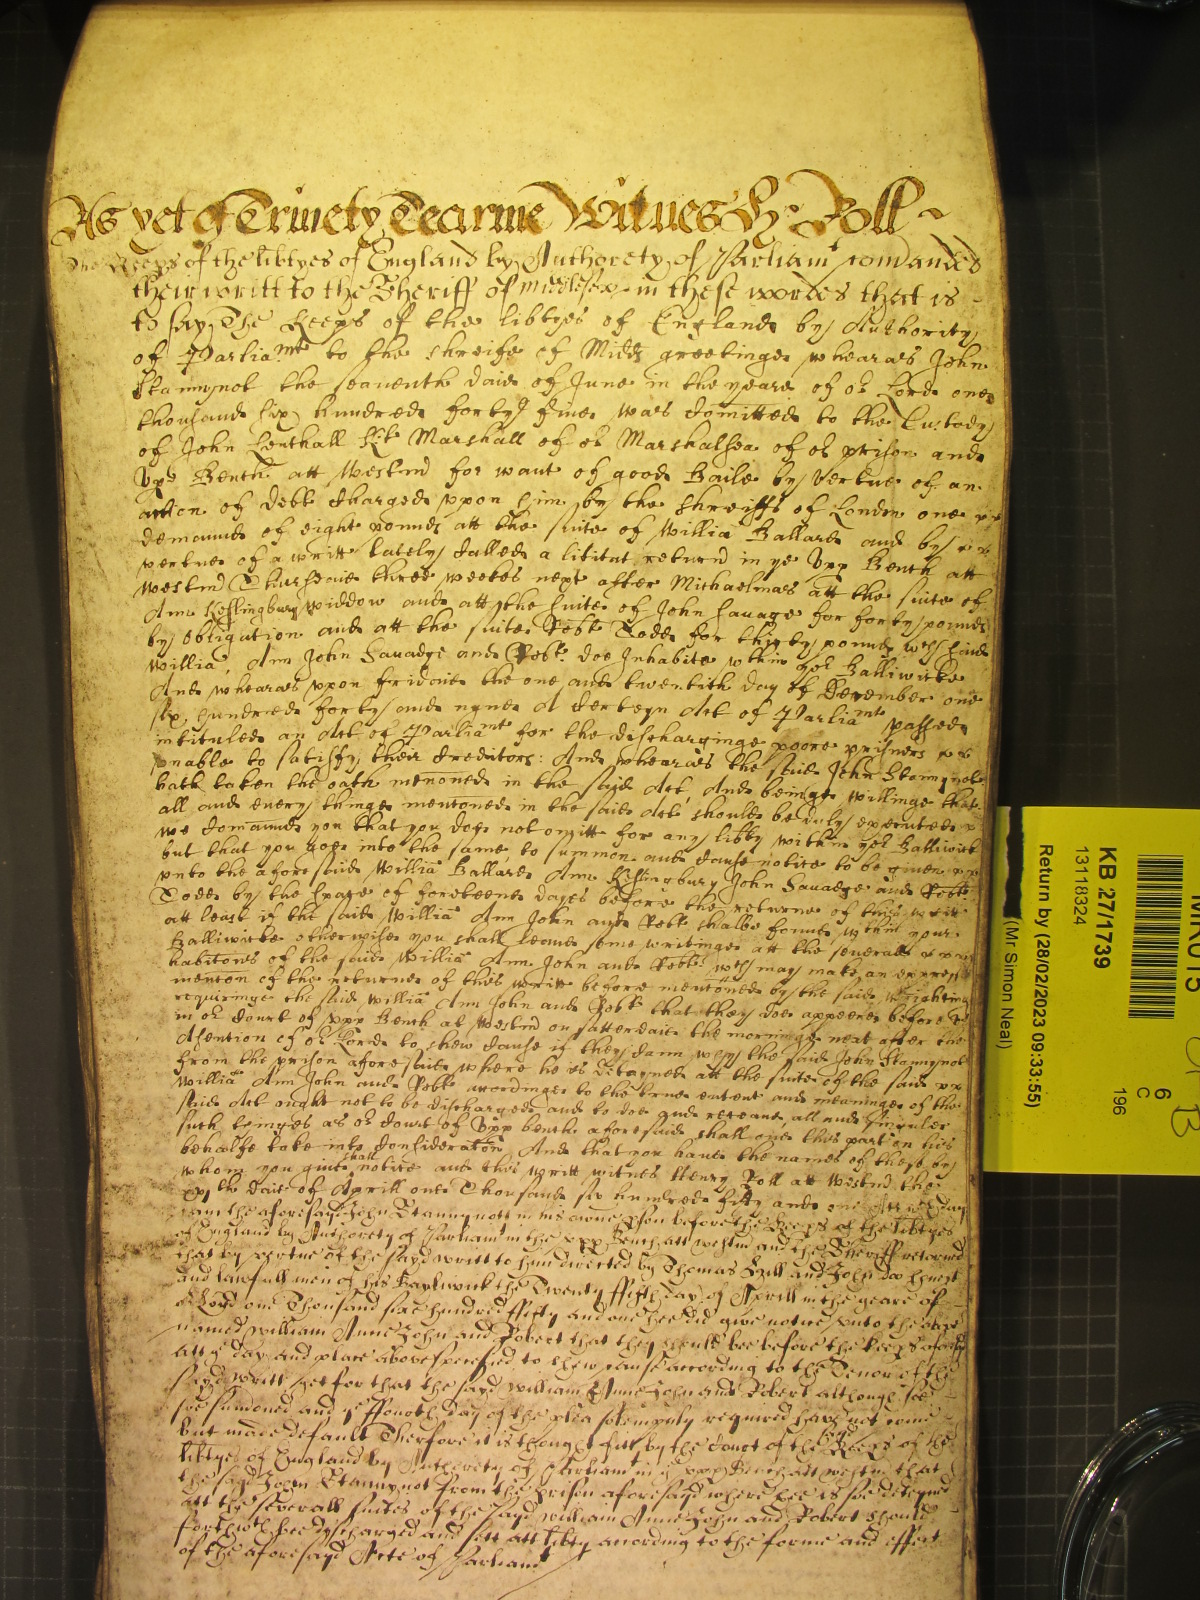 As yet of Trinety Tearme Witnes H: Roll
The Keeps of the libtyes of England by Authorety of Parliamt comandes
their writt to the Sheriff of Middlesex in these wordes that is
to say The Keeps of the libtyes of England by Authority
of Parliamt to the shreife of Midd greetinge whearaes John
Stannynot the seaventh daie of June in the yeare of or Lord one
thousand six hundred forty five waes comitted to the Custody
of John Lenthall Kt Marshall of or Marshalsea of or prison and
Upp Bench att Westmr for want of good Baile by vertue of an
action of debt charged uppon him by the shreiffs of London one
demaund of eight pounds att the suite of Willia Ballard and by
vertue of a writt lately called a latitat returnd in ye Upp Bench att
Westmr Thursdaie three weekes next after Michaelmas att the suite of
Ann Heslingbury widdow and att the suite of John Savage for forty pounds
by obligation and att the suite Robt Todd for thirty pounds wch said
Willia Ann John Savadge and Robt doe Inhabite wthin yor Balliwicke
And whearaes upon fridaie the one and twentith day of December one
six hundred forty and nyne A Certeyn Act of Parliamt passed
intituled an Act of Parliamt for the discharginge poore prisners
unable to satisfy their Creditors: And whearaes the said John Stannynot
hath taken the oath menoned in the said Act, And beinge willinge that
all and every thinge mentoned in the said Act should be duly executed
we Comaund you that you doe not omitt for any libty within yor Balliwick
but that you goe into the same to summon and cause notice to be given
unto the aforesaid Willia Ballard Ann Heslingbury John Savadge and Robt
Todd by the space of foreteene dayes before the returne of this writt
att least if the said Willia Ann John and Robt shalbe found wthin your
Balliwicke otherwise you shall leave some writinge att the severall
habitons of the said Willia Ann John and Robt wch may make an expresse
menton of the returne of this writt before mentoned by the said wrighting
requiringe the said Willia Ann John and Robt that they doe appeere before
in or Court of Upp Bench at Westmr on satterdaie the morninge next after the
Asention of or Lord to shew cause if they cann why the said John Stannynot
from the prison aforesaid where he is detayned att the suite of the said
Willia Ann John and Robt accordinge to the true entent and meaninge of the
said Act ought not to be discharged and to doe and receave all and singuler
such thinges as or Court of Upp bench aforesaid shall one this part on his
behalfe take into Consideraton And that you have the names of these by
whom you shall give notice and this writt witnes Henry Roll att Westmr the
xvth daie of Aprill one Thousand six hundred fifty and one Att wch day
came the aforesayd John Stannynott in his owne pson before the Keeps of the libtyes
of England by Authorety of Parliamt in the upp Bench att westm and the Sheriff returned
that by vertue of the sayd writt to him directed by Thomas Hill and John Doo honest
and lawfull men of his Baylywick the Twenty ffifth day of Aprill in the yeare of
or Lord one Thousand sixe hundred ffifty and one hee did give notice unto the above
named William Anne John and Robert that they should bee before the Keeps aforsd
att ye day and place abovespecified to shew cause according to the Tenor of the
sayd writt yet for that the sayd William Anne John and Robert although
soe sumoned and ye ffourth day of the plea solempnly required have not come
but made default Therfore it is thought fitt by the Court of the Keeps of the
libtyes of England by Authorety of Parliamt in ye upp Bench att westm that
the sayd John Stannynot from the prison aforesayd where hee is soe deteyned
att the severall suites of the sayd William Anne John and Robert should
forthwth bee dyscharged and sett att libty according to the forme and effect
of the aforesayd Acte of Parliamt
KB 27/1739
13118324
Return by (28/02/2023 09:33:55)
(Mr Simon Neal)
6
C
196